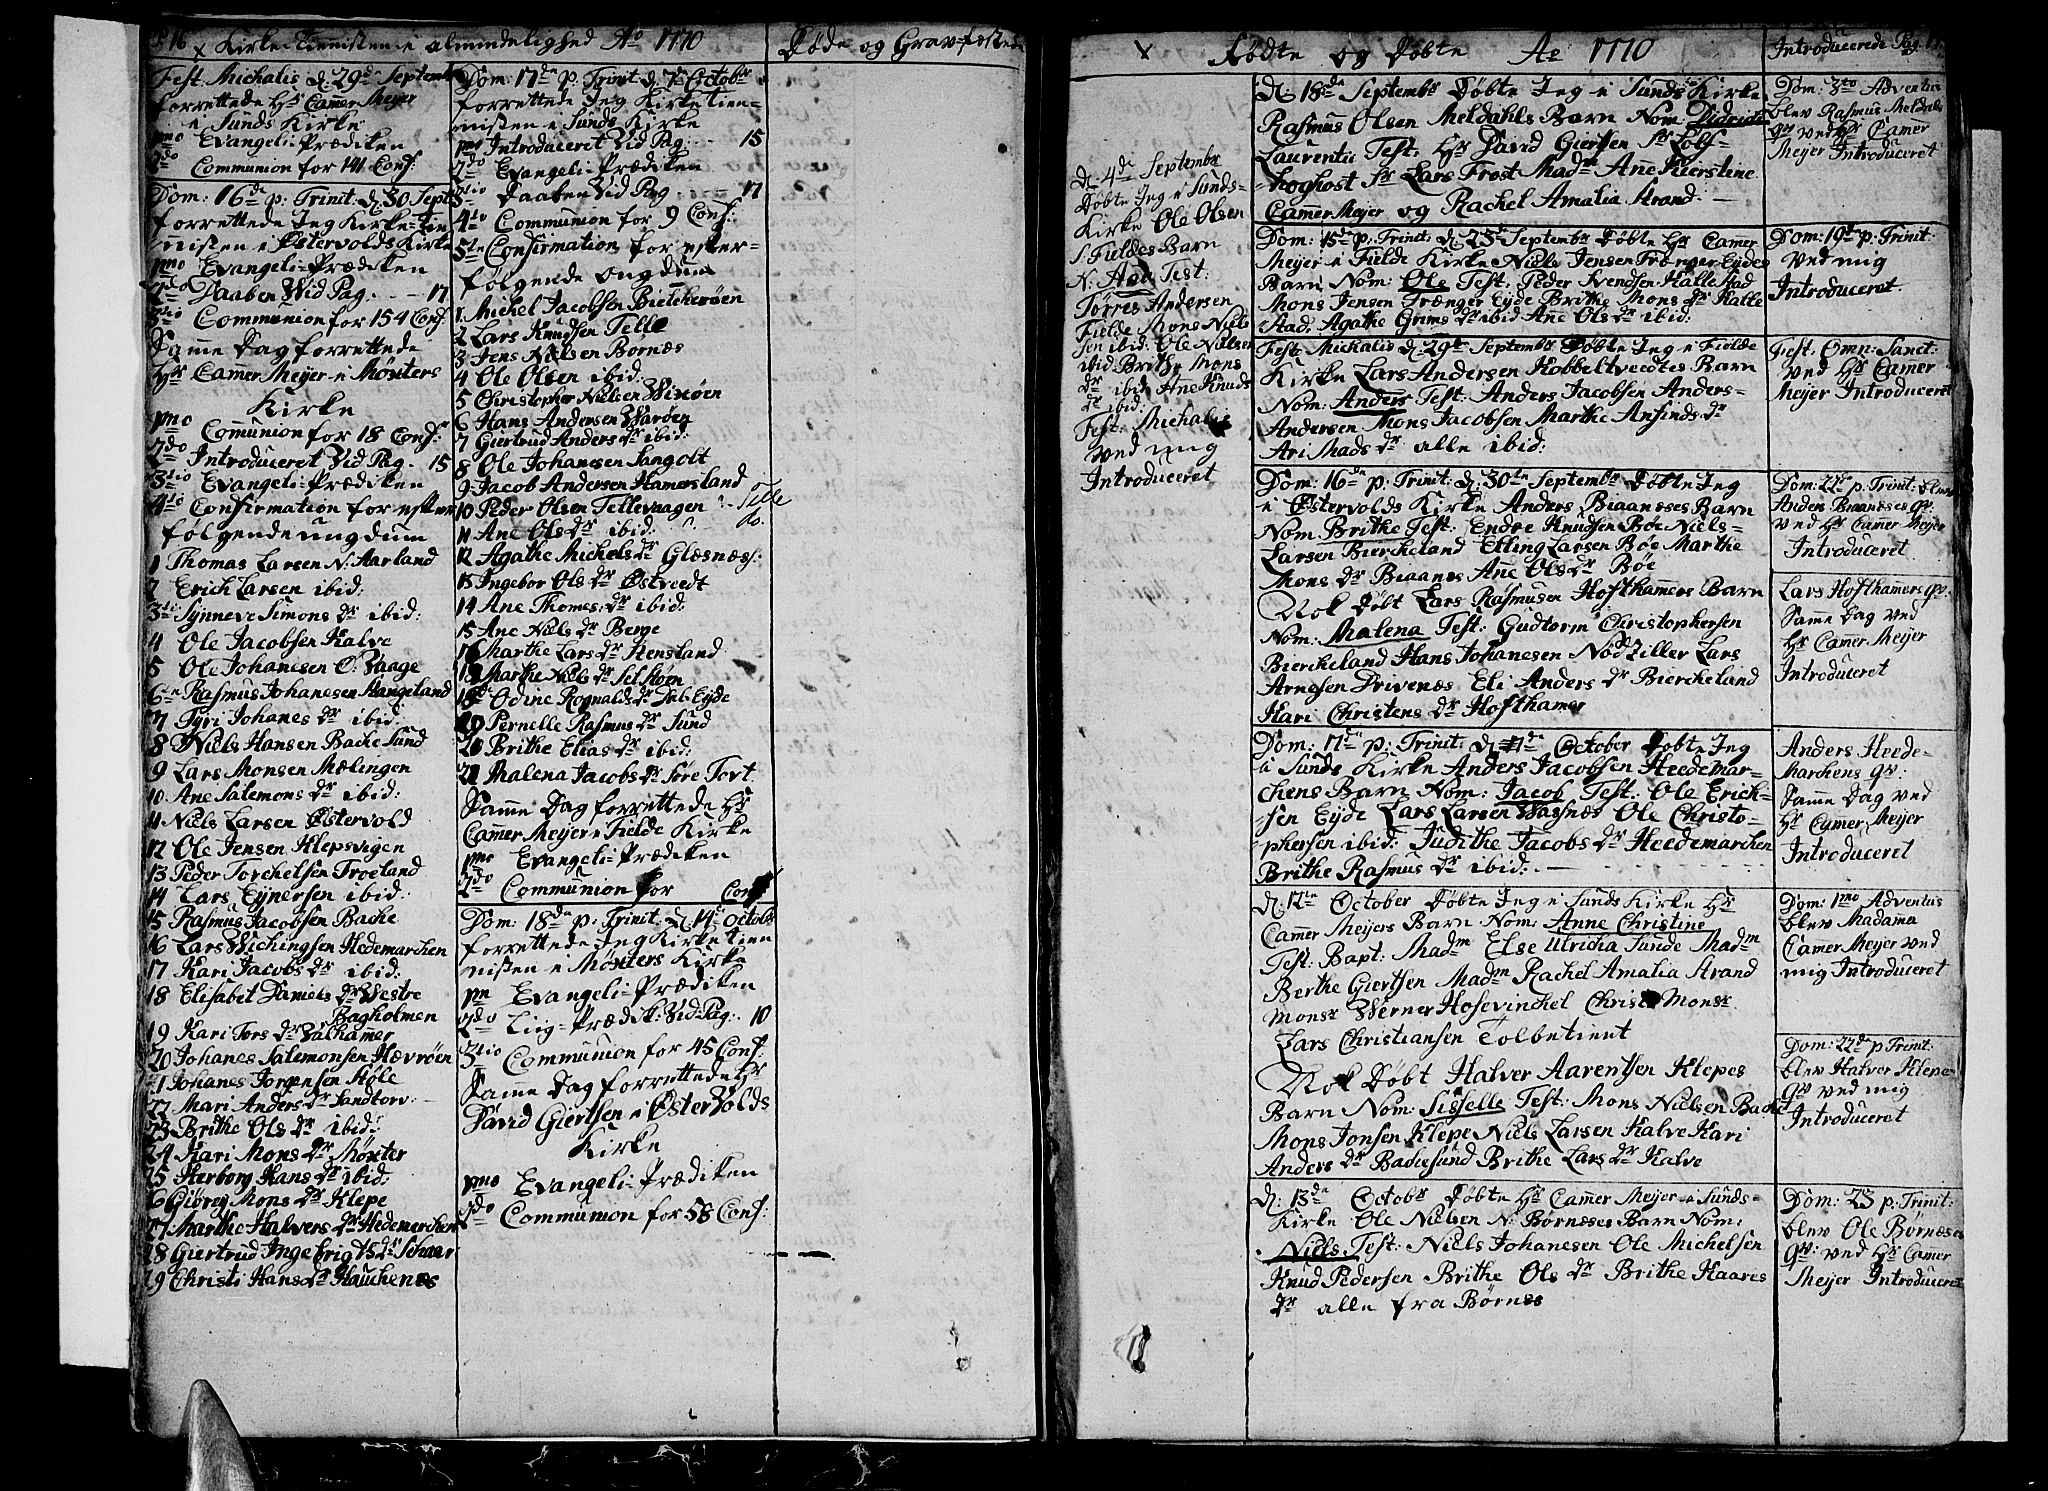 P. 16
x Kirke-Tienisten i almindelighed Ao 1770
Døde og Grav-fæstede
Fest. Michalis d. 29de September
forrettede Hr Camer Meyer
i Sunds Kirke
pmo Evangeli-Prædiken
2do Communion for 141 Conf:
Dom: 16de p: Trinit. d. 30 Sept:
forrettede Jeg Kirke-Tie
nisten i Østervolds Kirke
pmo Evangeli-Prædiken
2do Daaben Vid Pag. - - 17
3tio Communion for 154 Conf:
Samme Dag forrettede
Hr Camer Meyer i Møxters
Kirke
pmo Communion for 18 Conf:
2do Introduceret Vid Pag. 15
3tio Evangeli-Prædiken
4to Confirmation for efter
følgende ungdum
1 Thomas Larsen N: Aarland
2 Erich Larsen ibid:
3 Synneve Simons dr ibid:
4 Ole Jacobsen Kalve
5 Ole Johanesen O: Vaage
6 Rasmus Johanesen Hangeland
7 Tyri Johanes dr ibid:
8 Niels Hansen Backe Sund
9 Lars Monsen Mælingen
10 Ane Salemons dr ibid:
11 Niels Larsen Østervold
12 Ole Jensen Klepsvigen
13 Peder Torchelsen Troeland
14 Lars Eynersen ibid:
15 Rasmus Jacobsen Backe
16 Lars Wichingsen Hedemarchen
17 Kari Jacobs dr ibid:
18 Elisabet Daniels dr Vestre
Bagholmen
19 Kari Tors dr Valhammer
20 Johanes Salemonsen Hævrøen
21 Johanes Jorgensen Støle
22 Mari Anders dr Sandtorv
23 Brithe Ols dr ibid:
24 Kari Mons dr Møxter
25 Herborg Hans dr ibid:
26 Giørej Mons dr Klepe
27 Marthe Halvers dr Hedemarchen
28 Giertrud Ingebrigts dr Schaar
29 Christi Hans dr Hauchenes
Dom: 17de p. Trinit d. 7de Octobr
forrettede Jeg Kirketien=
nisten i Sunds Kirke
pmo Introduceret Vid Pag. - - 15
2do Evangeli-Prædiken
3tio Daaben Vid Pag - - - 17
4to Communion for 9 Conf:
5te Confirmation for efter=
følgende ongdum
1. Michel Jacobsen Bielcherøen
2 Lars Knudsen Telle
3 Jens Nielsen Børnæs
4 Ole Olsen ibid:
5 Christopher Nielsen Vixøen
6 Hans Andersen Warøen
7 Giertrud Anders dr ibid:
8 Ole Johanesen Sangolt
9 Jacob Andersen Hamersland
10 Peder Olsen Tellevaagen :- Telle
11 Ane Ols dr ibid: :- do.
12 Agathe Michels dr Glæsnæs:
13 Ingebor Ols dr Østvedt
14 Ane Thomes: dr ibid:
15 Ane Niels dr Berge
16 Marthe Lars dr Stensland
17 Marthe Niels dr Sel Støen
18 Odine Rognalds dr Sel-Eyde
19 Pernelle Rasmus dr Sund
20 Brithe Elias dr ibid:
21 Malena Jacobs dr Søre Tort
Samme Dag forrettede Hr
Camer Meyer i Fielde Kirke
pmo Evangeli-Prædiken
2do Communion for Conf
Dom: 18de p: Trinit: d. 14de Octobr
forrettede Jeg Kirketien
nisten i Møxters Kirke
pm Evangeli-Prædiken
2do Liig-Prædik: Vid Pag:. 10
3tio Communion for 45 Conf:
Samme Dag forrettede Hr
David Giertsen i Østervolds
Kirke
pmo Evangeli-Prædiken
2do Communion for 58 Conf:
x Fødte og Døbte Ao 1770
Introducerede Pag. 17
D. 4de September
Døbte Jeg i Sunds-
Kirke Ole Olsen
S. Fieldes Barn
N: Age Test:
Tørres Andersen
Fielde Mons Niels
sen ibid: Ole Nielsen
ibid Brithe Mons
dr ibid Ane Knuds
dr ibid:
Fest: Michalis
ved mig
Introduceret
D. 18de Septembr Døbte Jeg i Sunds Kirke
Rasmus Olsen Meldahls Barn Nom: Didricte
Laurentii Test. Hr David Giertsen Sr Lobs-
Hoghost Sr Lars Frost Madm Ane Kierstine
Camer Meyer og Rachel Amalia Strand.
Dom: 3tio Adventus
blev Rasmus Meldals
qv ved Hr Camer
Meyer Introduceret
Dom: 15de p: Trinit: d. 23de Septembr Døbte Hr Camer
Meyer i Fielde Kirke Niels Jensen Trænger Eydes
Barn Nom: Ole Test. Peder Svendsen Halle Stad
Mons Jensen Trænger Eyde Brithe Mons dr Halle
Stad: Agathe Grims dr ibid Ane Ols dr ibid:
Dom: 19de p: Trinit
ved mig
Introduceret
Fest Michalis d. 29de Septembr Døbte Jeg i Fielde
Kirke Lars Andersen Kobbeltvedtes Barn
Nom: Anders Test. Anders Jacobsen Anders-
Andersen Mons Jacobsen Marthe Ansinds dr
Ari Mads dr alle ibid:
Fest. Omn: Sanct:
ved Hr Camer
Meyer Introduceret
Dom: 16de p: Trinit: d. 30te Septembr Døbte Jeg
i Østervolds Kirke Anders Biaanæses Barn
Nom: Brithe Test. Endre Knudsen Bøe Niels-
Larsen Bierckeland Elling Larsen Bøe Marthe
Mons dr Biaanæs Ane Ols dr Bøe
Dom: 22de p: Trinit: blev
Anders Biaanæses qv:
ved Hr Camer Meyer
Introduceret
Nok Døbt Lars Rasmusen Hofthamers Barn
Nom: Malena Test: Gudtorm Christophersen
Bierckeland Hans Johanesen Nødtziller Lars
Arnesen Drivenæs Eli Anders dr Bierckeland
Kari Christens dr Hofthamer
Lars Hofthamers qv:
Samme Dag ved
Hr Camer Meyer
Introduceret
Dom: 17de p: Trinit: d. 7de October Døbte Jeg
i Sunds Kirke Anders Jacobsen Heedemar-
chens Barn Nom: Jacob Test: Ole Erich-
sen Eyde Lars Larsen Vasnæs Ole Christo-
phersen ibid: Judithe Jacobs dr Heedemarchen
Brithe Rasmus dr ibid:
Anders Heede-
marchens qv:
Samme Dag ved
Hr Camer Meyer
Introduceret
D. 12te October Døbte Jeg i Sunds Kirke Hr
Camer Meyers Barn Nom: Anne Christine
Test: Bapt: Madm Else Ulricha Sunde Madm
Berthe Giertsen Madm Rachel Amalia Strand
Monsr Werner Hosevinckel Christ Monsr
Lars Christiansen Tolbetient
Dom: 1mo Adventus
blev Madama
Camer Meyer ved
mig Introduceret
Nok Døbt Halver Aarentsen Klepes
Barn Nom: Sisselle Test: Mons Nielsen Backe
Mons Jonsen Klepe Niels Larsen Kalve Kari
Anders dr Backesund Brithe Lars dr Kalve
Dom: 22de p Trinit:
blev Halver Klepe
qv ved mig
Introduceret
D. 13de Octobr Døbte Hr Camer Meyer i Sunds-
Kirke Ole Nielsen N: Børnæses Barn Nom:
Niels Test: Niels Johanesen Ole Michelsen
Knud Pedersen Brithe Ols dr Brithe Kaares
dr alle fra Børnæs
Dom: 23 p: Trinit:
blev Ole Børnæses
qv: ved Hr Camer
Meyer Introduceret